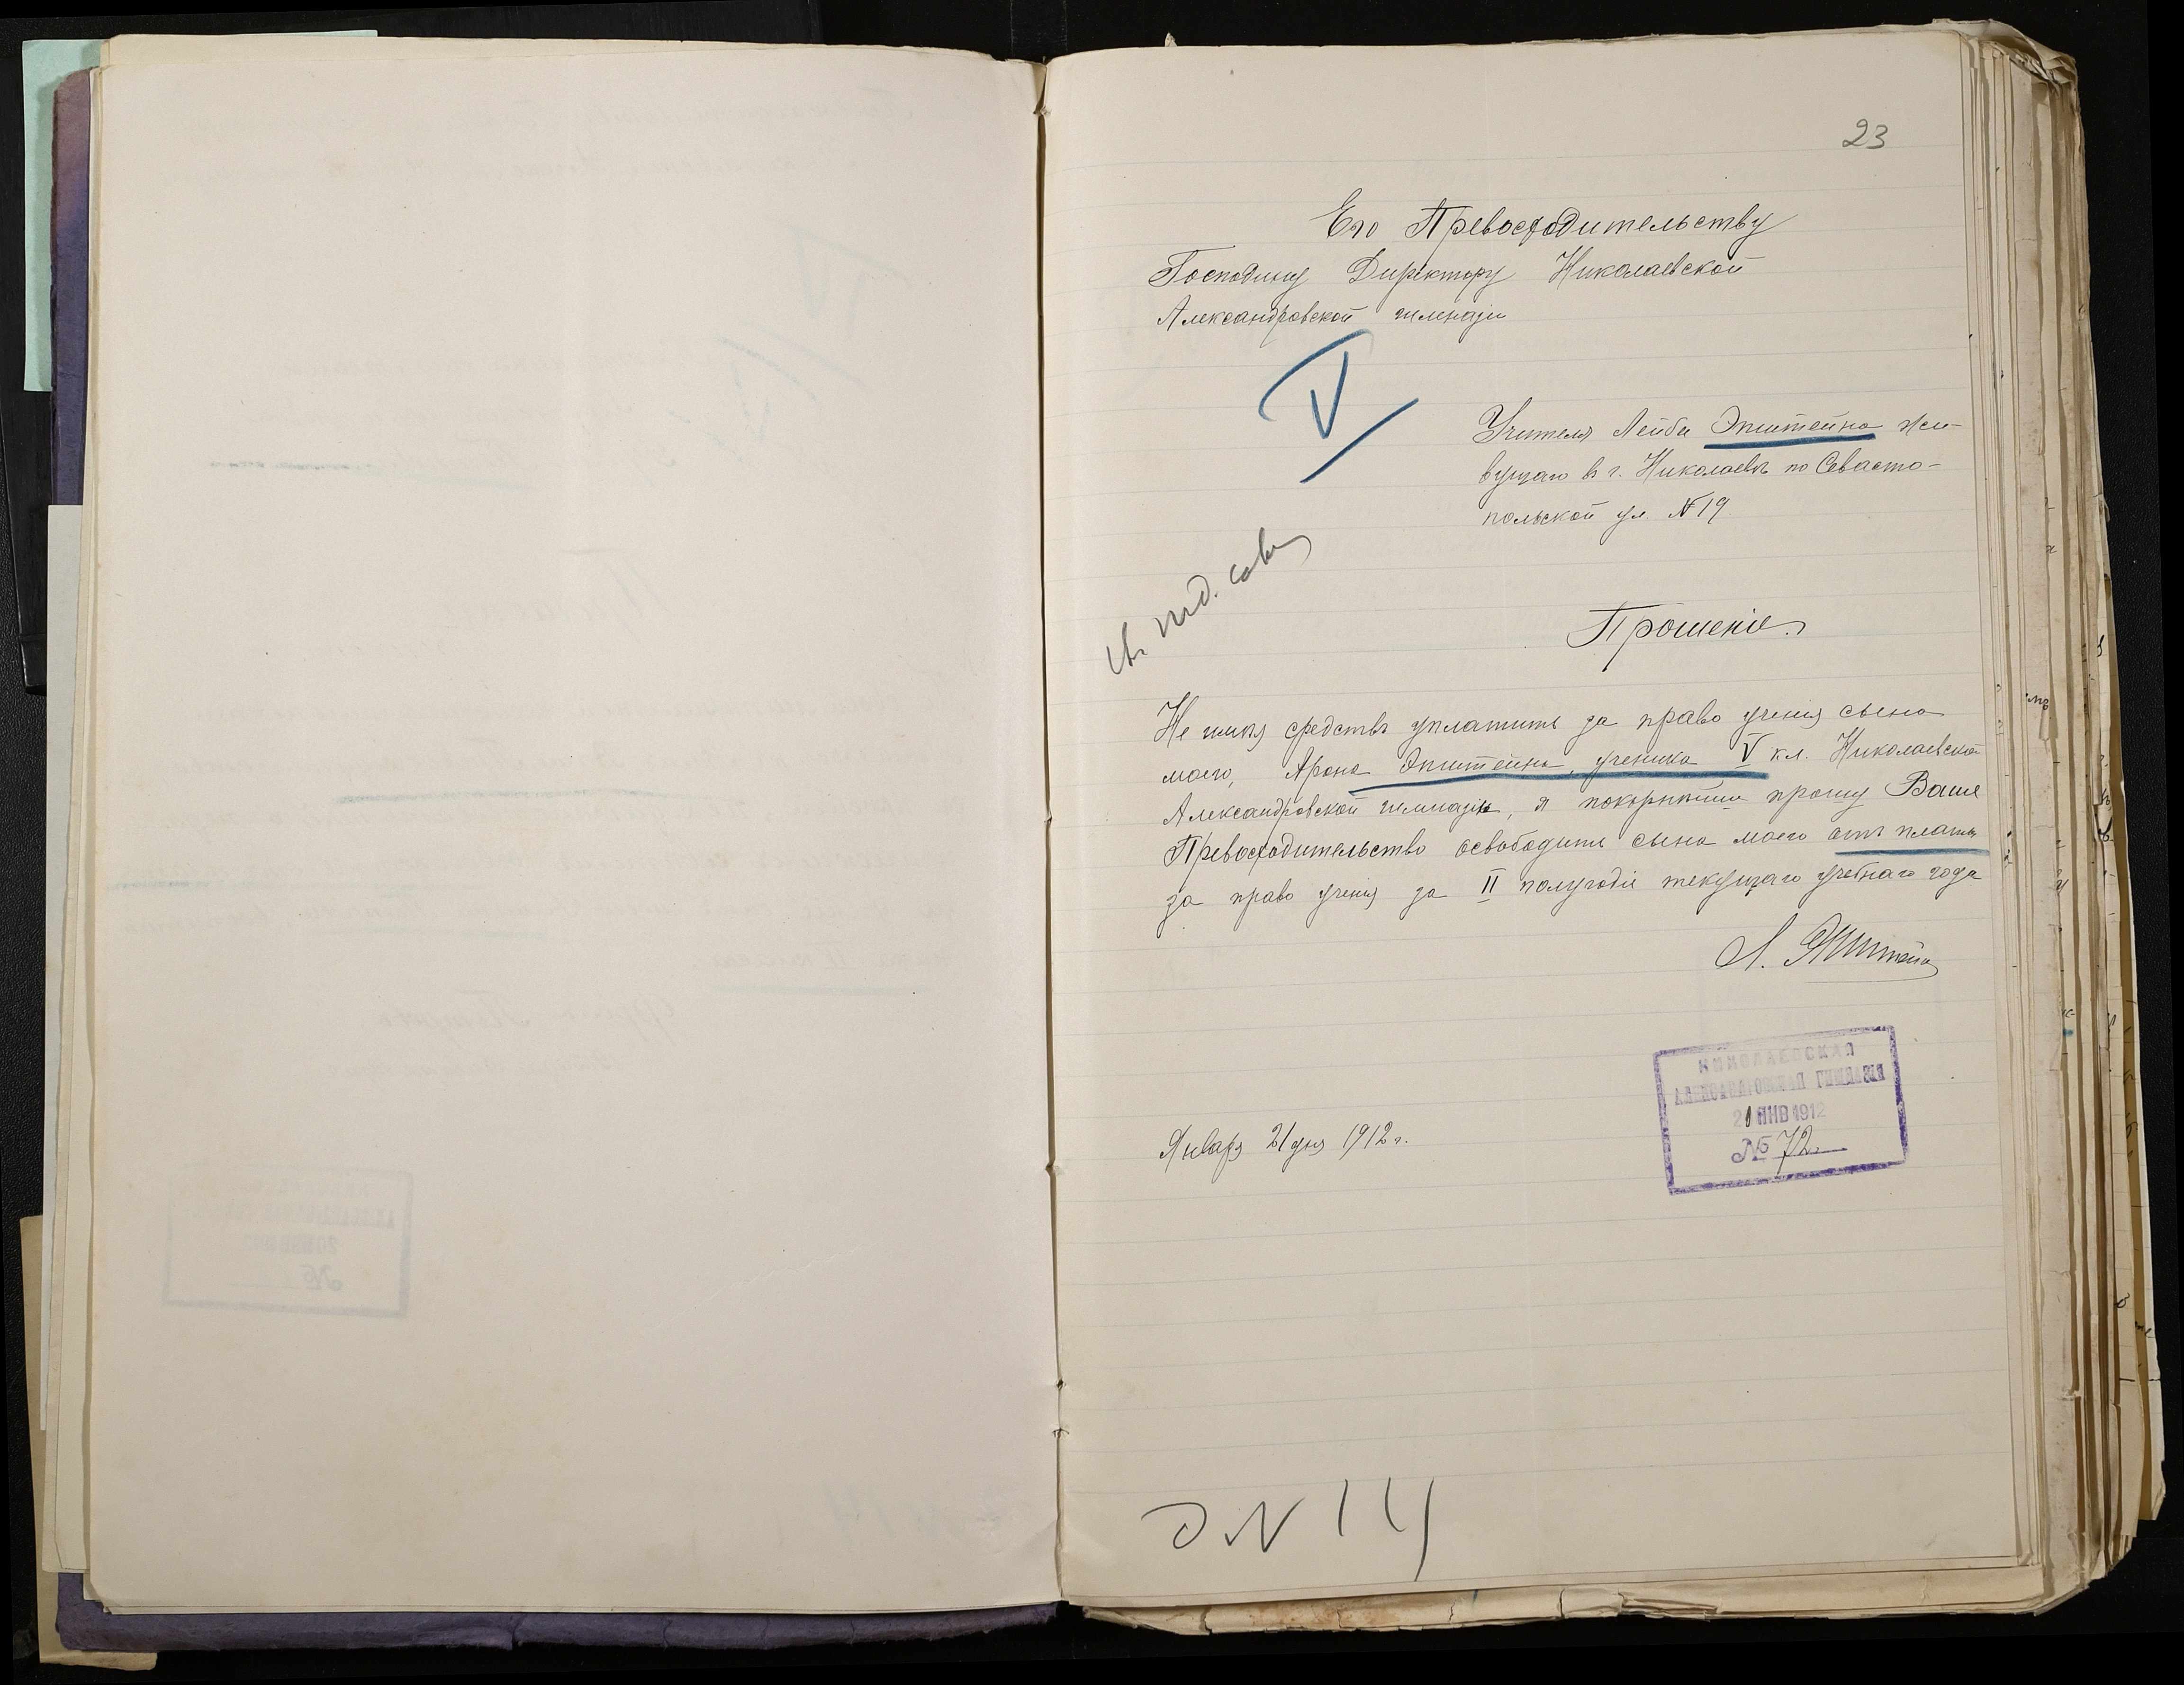 23
Его Превосходительству
Господину Директору Николаевской
Александровской гимназіи
V
Учителя Лейбы Эпштейна жи-
вущаго въ г. Николаевѣ по Севасто-
польской ул. №19
въ пед. сов.
Прошеніе.
Не имѣя средствъ уплатить за право ученія сына
моего, Арона Эпштейна, ученика V кл. Николаевской
Александровской гимназіи, я покорнѣйше прошу Ваше
Превосходительство освободить сына моего отъ платы
за право ученія за II полугодіе текущаго учебнаго года
Л. Эпштейнъ
НИКОЛАЕВСКАЯ
АЛЕКСАНДРОВСКАЯ ГИМНАЗІЯ
21 ЯНВ 1912
№ 72
Января 21 дня 1912 г.
Э N 14